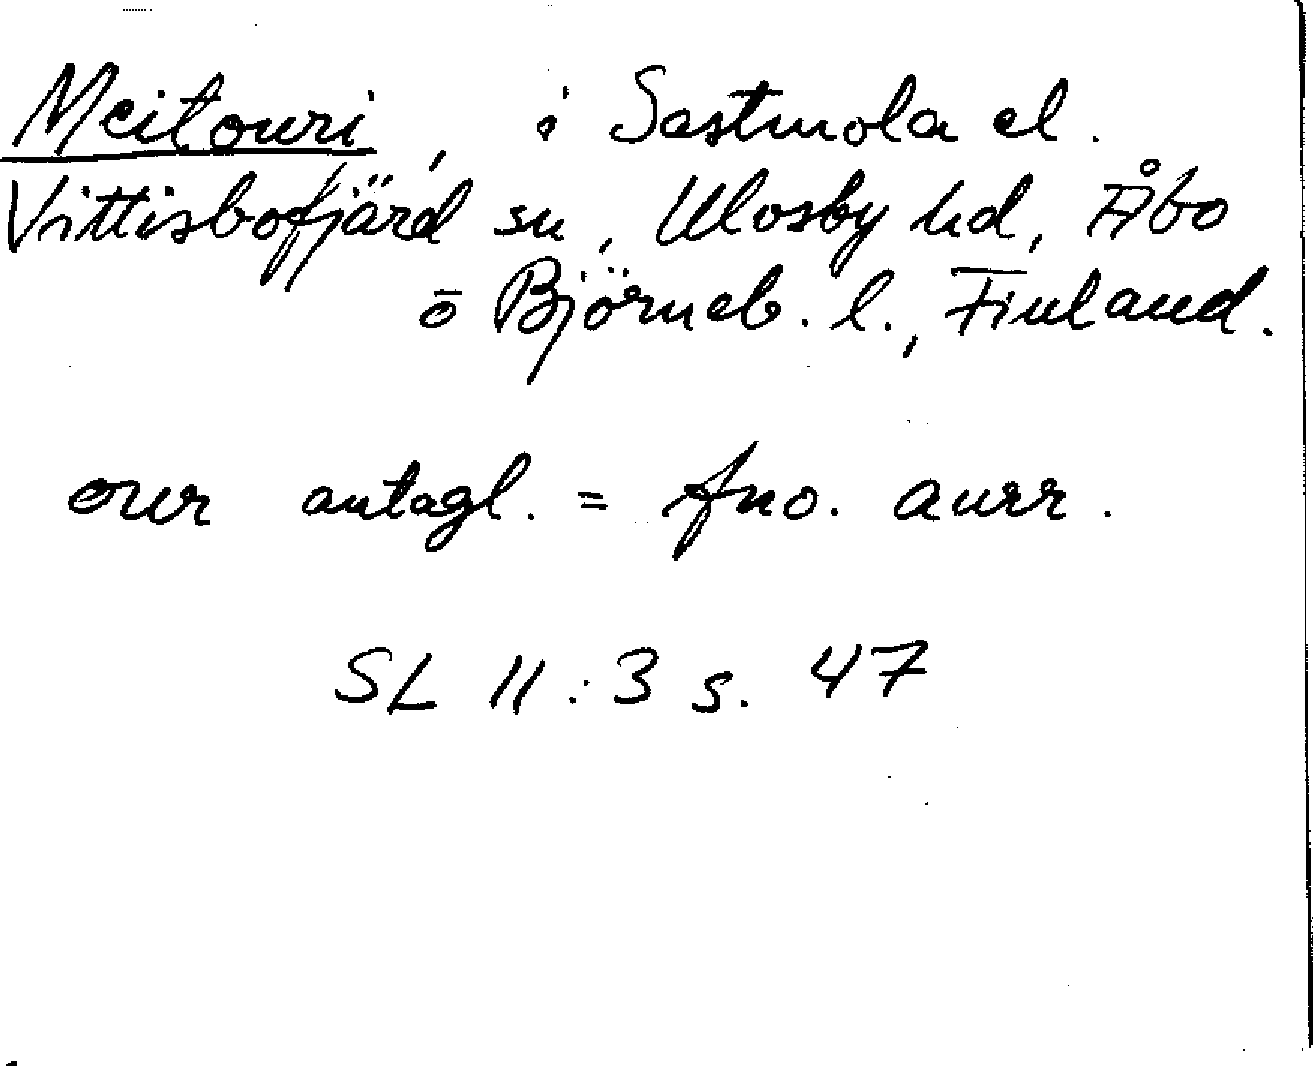 Meitouri, i Sastmola el.
Vittisbofjärd sn, Ulvsby hd, Åbo
o Björneb. l., Finland.
our antagl. = fno. aurr.
SL 11:3 s. 47